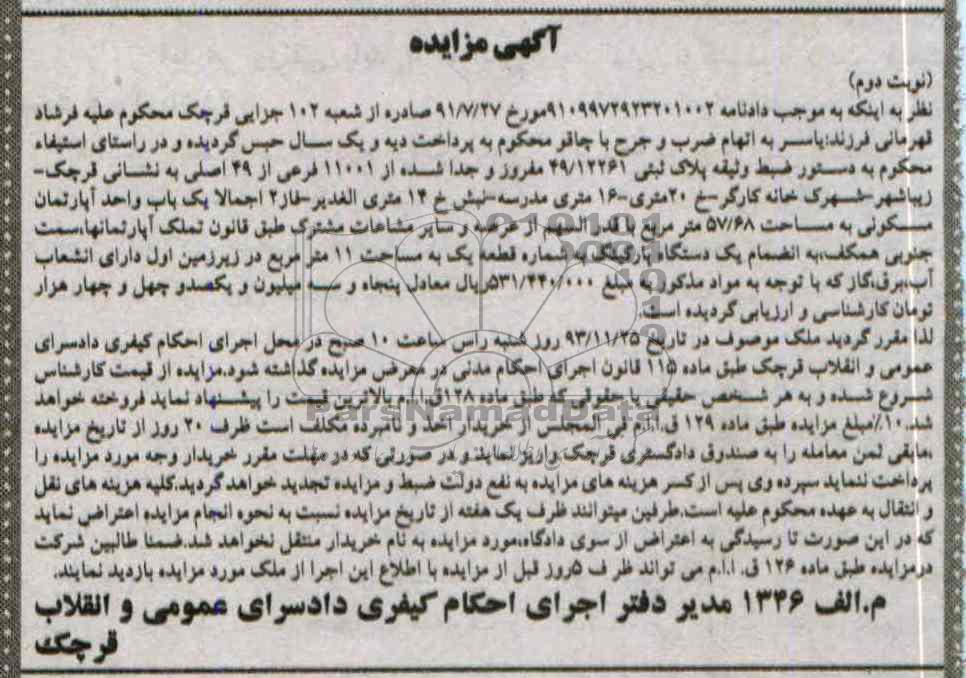 آگهی مزایده
(نوبت دوم)
نظر به اینکه به موجب دادنامه ۹۱۰۹۹۷۲۹۲۳۲۰۱۰۰۲مورخ ۹۱/۷/۲۷ صادره از شعبه ۱۰۲ جزایی قرچک محکوم علیه فرشاد
قهرمانی فرزند:یاسر به اتهام ضرب و جرح با چاقو محکوم به پرداخت دیه و یک سال حبس گردیده و در راستای استیفاء
محکوم به دستور ضبط وثیقه پلاک ثبتی ۴۹/۱۲۲۶۱ مفروز و جدا شده از ۱۱۰۰۱ فرعی از ۴۹ اصلی به نشانی قرچک-
زیباشهر-شهرک خانه کارگر-خ ۲۰متری-۱۶ متری مدرسه-نبش خ ۱۴ متری الغدیر-فاز۲ اجمالا یک باب واحد آپارتمان
مسکونی به مساحت ۵۷/۶۸ متر مربع با قدر السهم از عرصه و سایر مشاعات مشترک طبق قانون تملک آپارتمانها،سمت
جنوبی همکف،به انضمام یک دستگاه پارکینگ به شماره قطعه یک به مساحت ۱۱ متر مربع در زیرزمین اول دارای انشعاب
آب،برق،گاز که با توجه به مواد مذکور به مبلغ ۵۳۱/۴۴۰/۰۰۰ریال معادل پنجاه و سه میلیون و یکصدو چهل و چهار هزار
تومان کارشناسی و ارزیابی گردیده است.
لذا مقرر گردید ملک موصوف در تاریخ ۹۳/۱۱/۲۵ روز شنبه راس ساعت ۱۰ صبح در محل اجرای احکام کیفری دادسرای
عمومی و انقلاب قرچک طبق ماده ۱۱۵ قانون اجرای احکام مدنی در معرض مزایده گذاشته شود.مزایده از قیمت کارشناس
شروع شده و به هر شخص حقیقی یا حقوقی که طبق ماده ۱۲۸ق.ا.ا.م بالاترین قیمت را پیشنهاد نماید فروخته خواهد
شد.۱۰٪مبلغ مزایده طبق ماده ۱۲۹ ق.ا.ا.م فی المجلس از خریدار اخذ و نامبرده مکلف است ظرف ۲۰ روز از تاریخ مزایده
،مابقی ثمن معامله را به صندوق دادگستری قرچک واریز نماید و در صورتی که در مهلت مقرر خریدار وجه مورد مزایده را
پرداخت ننماید سپرده وی پس از کسر هزینه های مزایده به نفع دولت ضبط و مزایده تجدید خواهد گردید.کلیه هزینه های نقل
و انتقال به عهده محکوم علیه است.طرفین میتوانند ظرف یک هفته از تاریخ مزایده نسبت به نحوه انجام مزایده اعتراض نماید
که در این صورت تا رسیدگی به اعتراض از سوی دادگاه،مورد مزایده به نام خریدار منتقل نخواهد شد.ضمنا طالبین شرکت
درمزایده طبق ماده ۱۲۶ ق. ا.ا.م می تواند ظرف ۵روز قبل از مزایده با اطلاع این اجرا از ملک مورد مزایده بازدید نمایند.
م.الف ۱۳۴۶ مدیر دفتر اجرای احکام کیفری دادسرای عمومی و انقلاب
قرچک
ParsNamadData